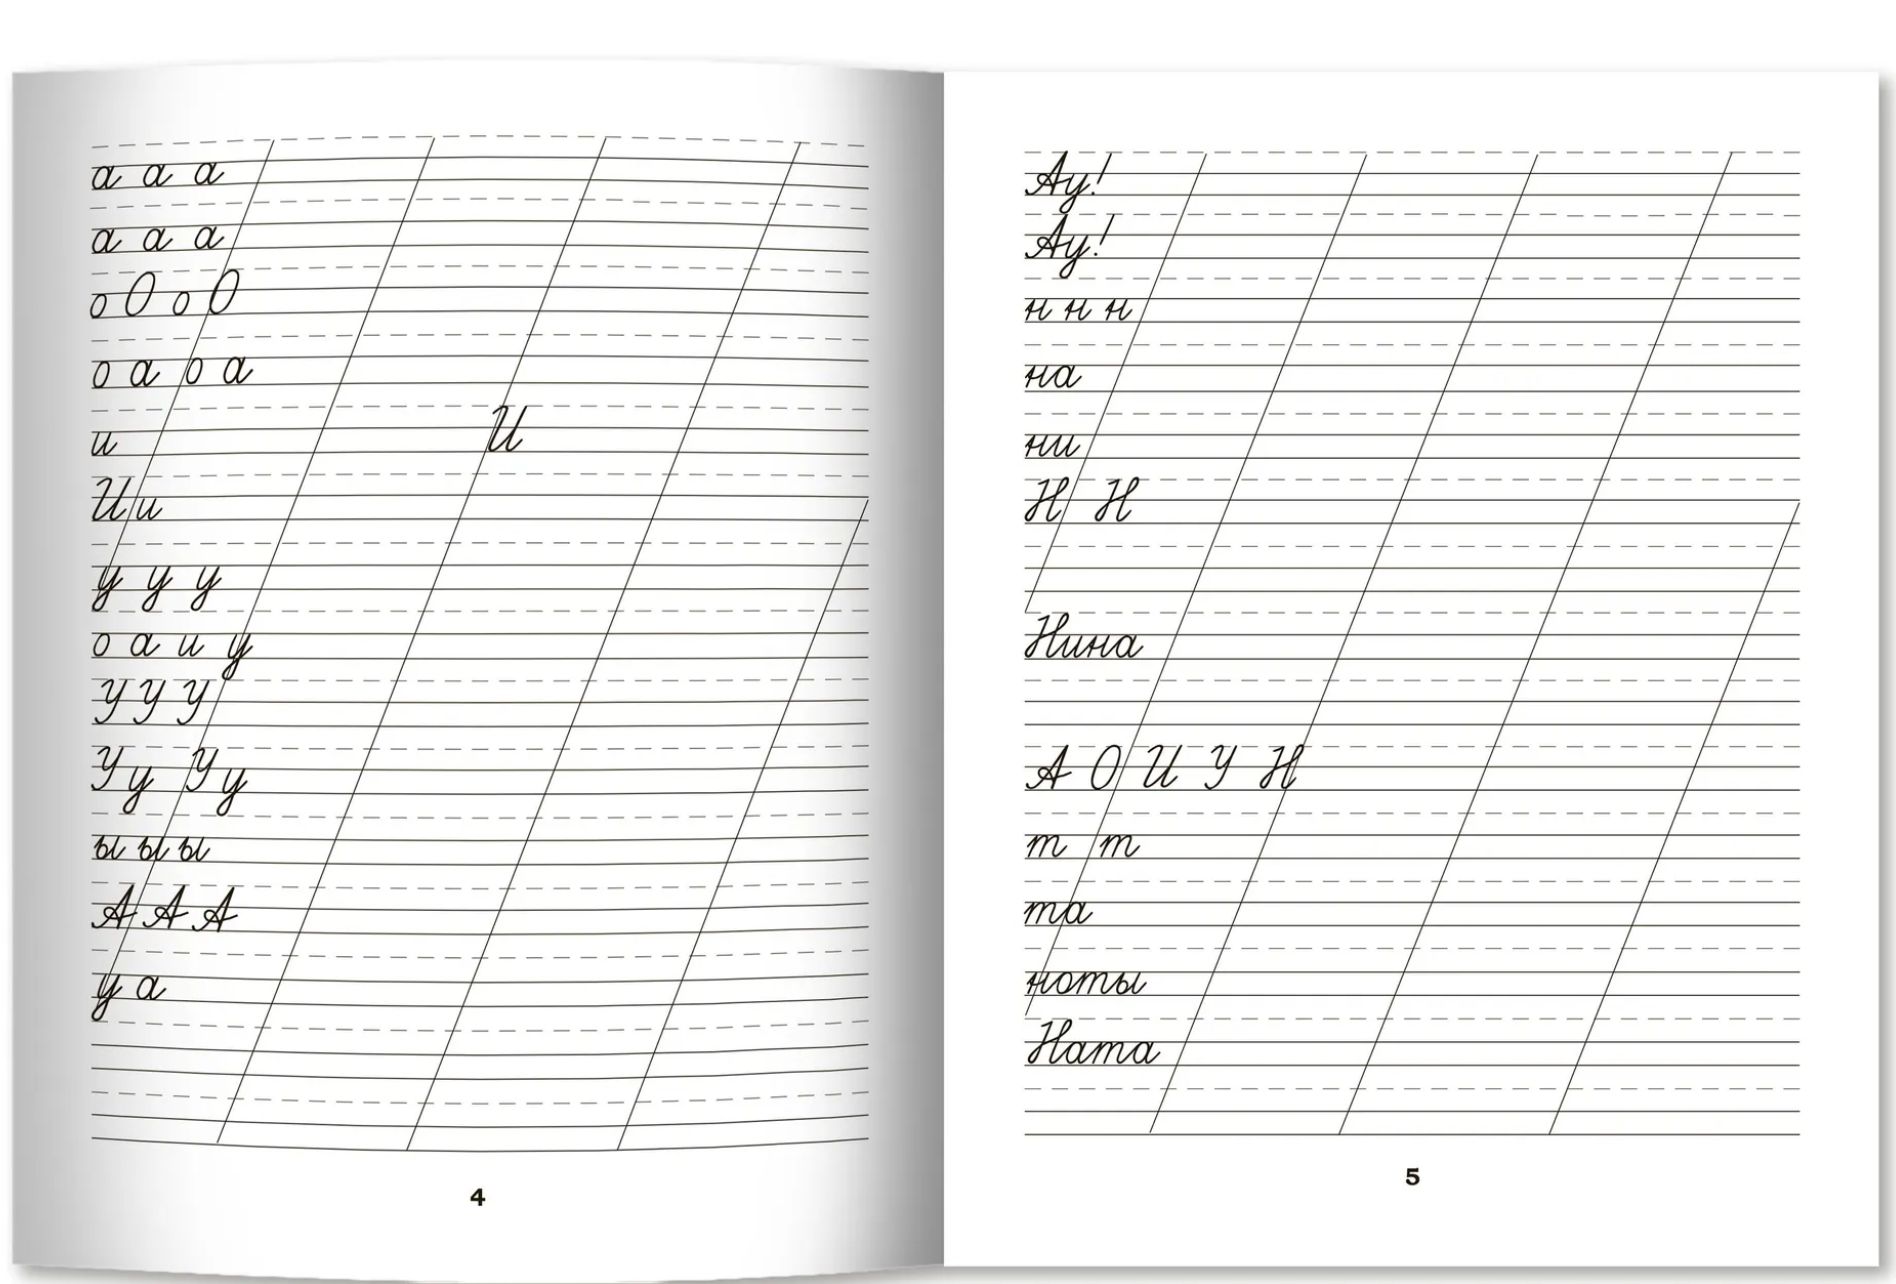 а а а
а а а
о О о О
о а о а
и И
И и
у у у
о а и у
У У У
Уу Уу
ы ы ы
А А А
у а
4
Ау!
Ау!
н н н
на
ни
Н Н
Нина
А О И У Н
т т
та
ноты
Ната
5